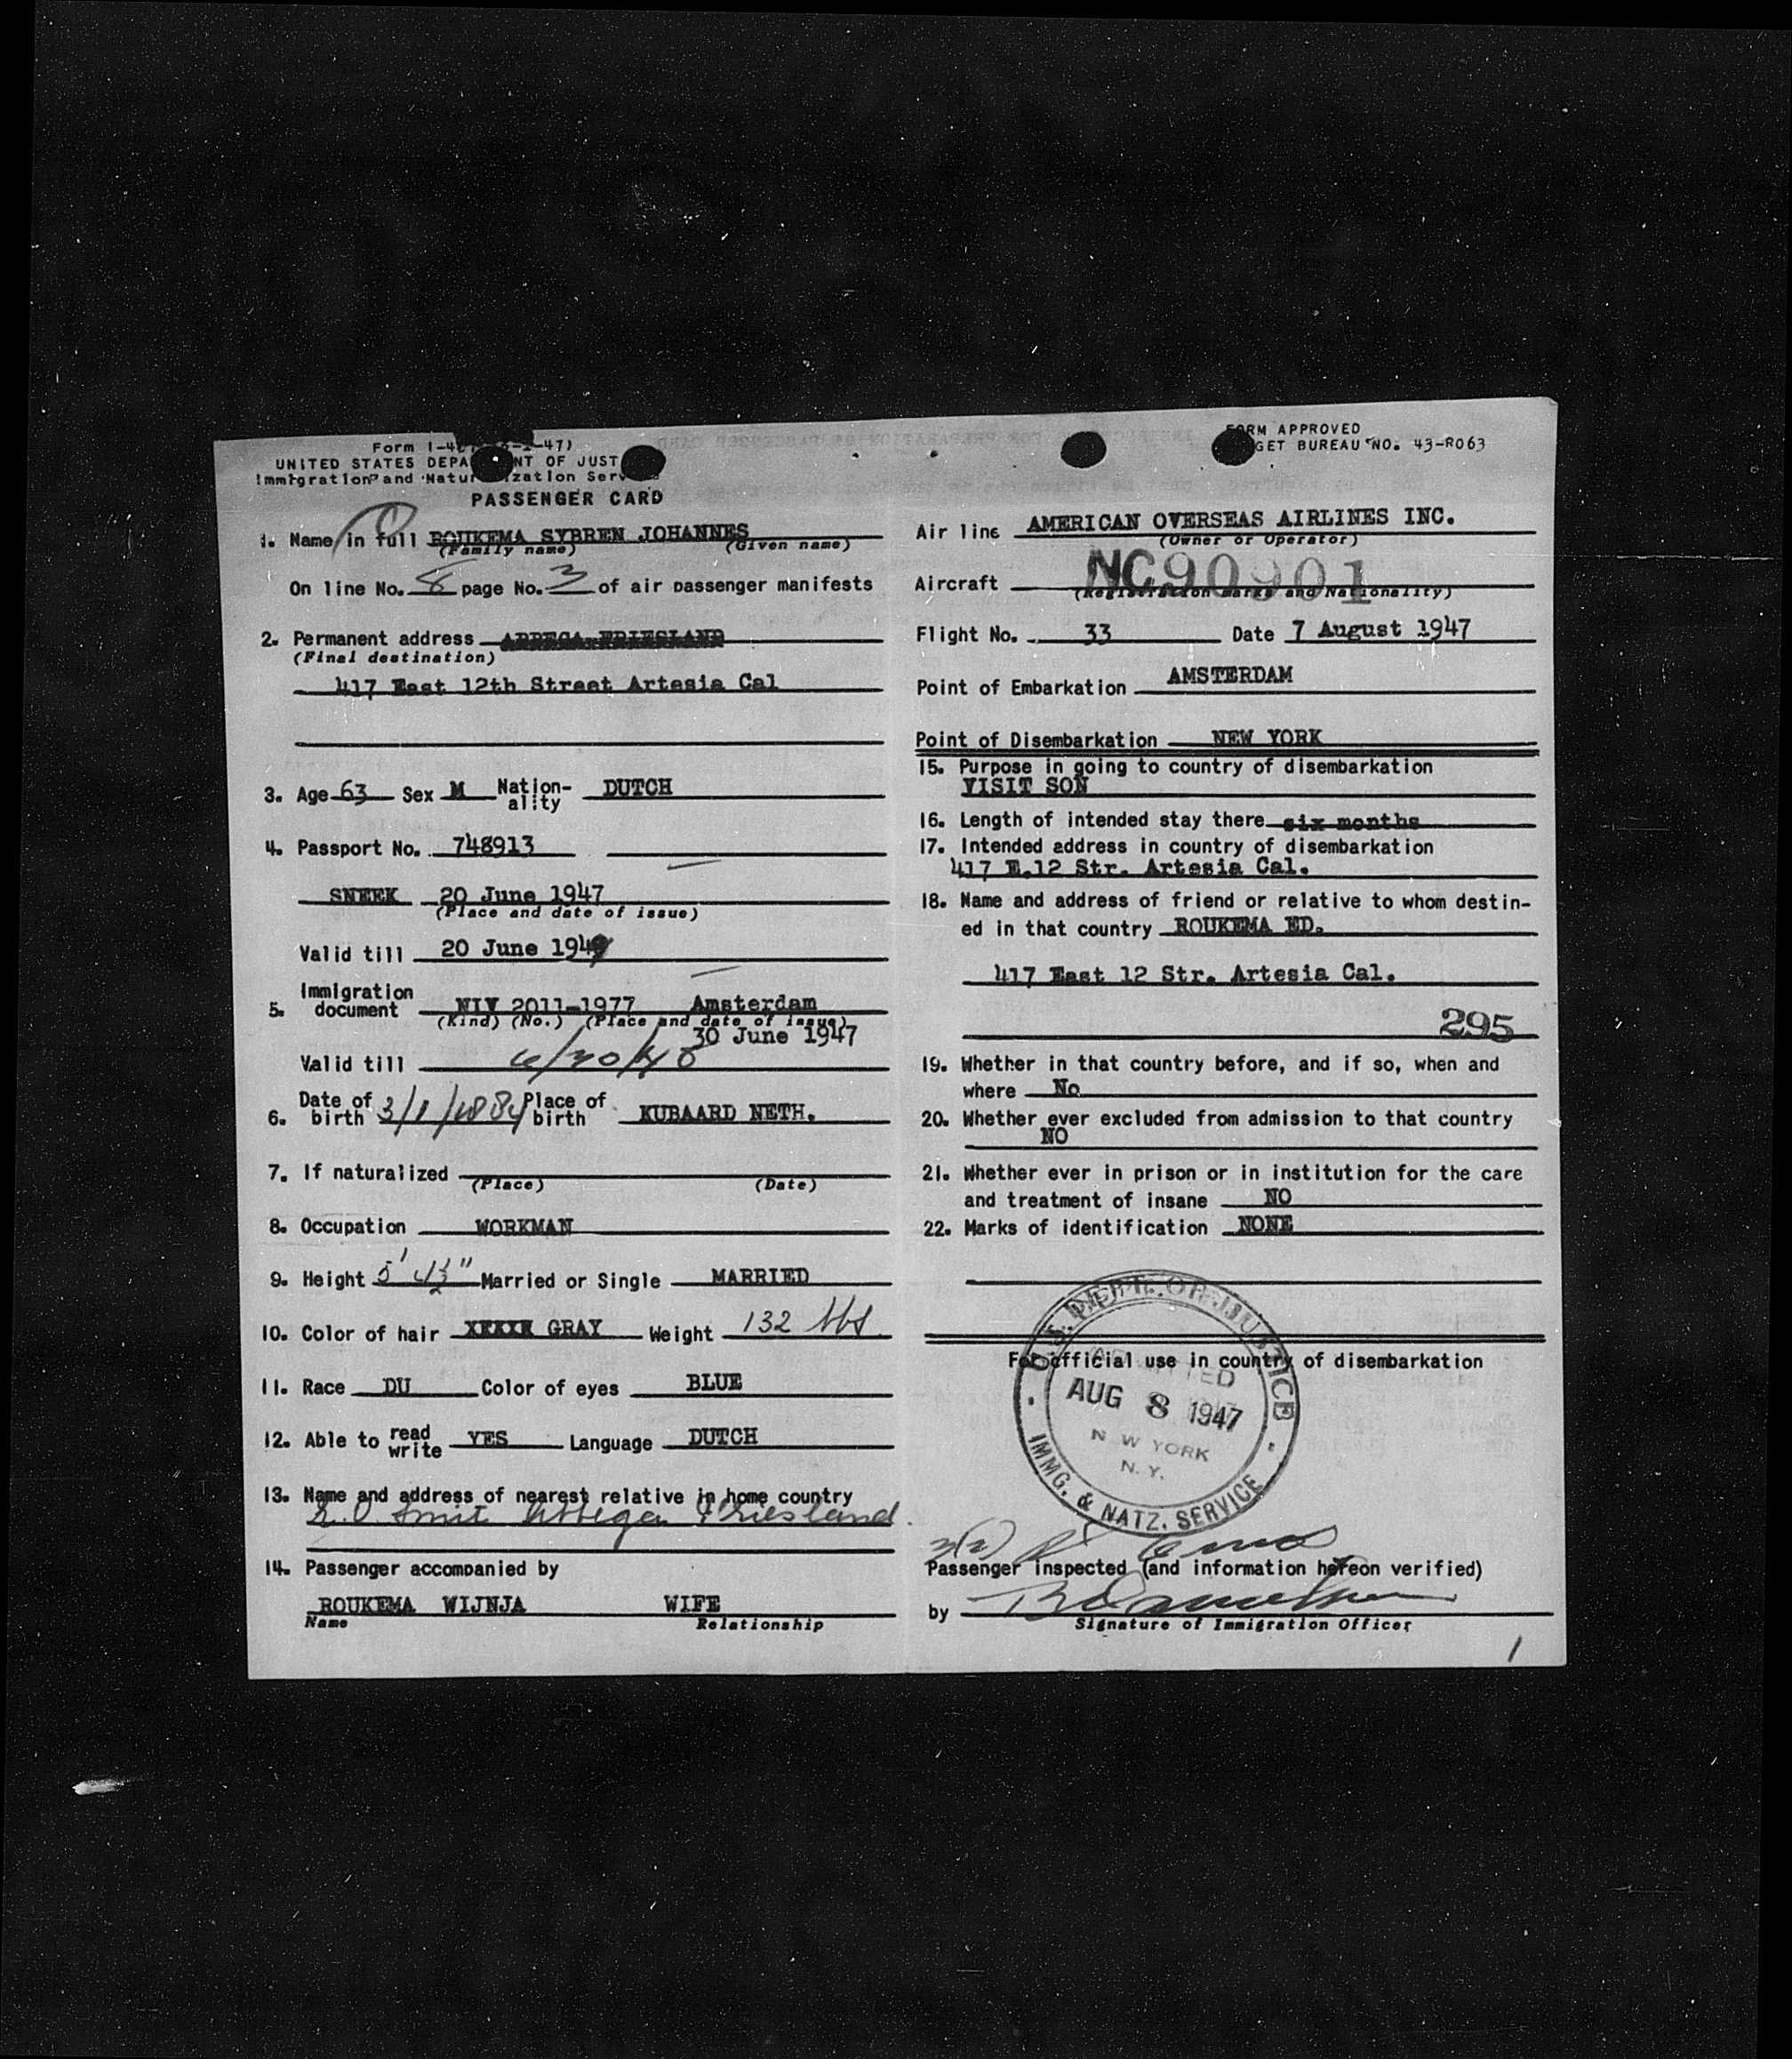 Form I-4 -47)
UNITED STATES DEPA NT OF JUST
Immigration and Natur ization Serv
PASSENGER CARD
1. Name in full ROUKEMA SYBREN JOHANNES
(Family name) (Given name)
On line No. 8 page No. 3 of air passenger manifests
2. Permanent address ABBEGA FRIESLAND
(Final destination)
417 East 12th Street Artesia Cal
3. Age 63 Sex M Nation-ality DUTCH
4. Passport No. 748913
SNEEK 20 June 1947
(Place and date of issue)
Valid till 20 June 1949
5. Immigration document NIV 2011-1977 Amsterdam
(Kind) (No.) (Place and date of issue)
30 June 1947
Valid till 6/30/48
6. Date of birth 3/1/1884 Place of birth KUBAARD NETH.
7. If naturalized
(Place) (Date)
8. Occupation WORKMAN
9. Height 5' 4½" Married or Single MARRIED
10. Color of hair GRAY Weight 132 lbs
11. Race DU Color of eyes BLUE
12. Able to read write YES Language DUTCH
13. Name and address of nearest relative in home country
Smit Abbega Friesland.
14. Passenger accompanied by
ROUKEMA WIJNJA WIFE
Name Relationship
FORM APPROVED
GET BUREAU NO. 43-R063
Air line AMERICAN OVERSEAS AIRLINES INC.
(Owner or Operator)
Aircraft NC90901
(Registration marks and Nationality)
Flight No. 33 Date 7 August 1947
Point of Embarkation AMSTERDAM
Point of Disembarkation NEW YORK
15. Purpose in going to country of disembarkation
VISIT SON
16. Length of intended stay there six months
17. Intended address in country of disembarkation
417 E.12 Str. Artesia Cal.
18. Name and address of friend or relative to whom destin-
ed in that country ROUKEMA ED.
417 East 12 Str. Artesia Cal.
295
19. Whether in that country before, and if so, when and
where No
20. Whether ever excluded from admission to that country
NO
21. Whether ever in prison or in institution for the care
and treatment of insane NO
22. Marks of identification NONE
For official use in country of disembarkation
U.S. DEPT. OF JUSTICE
ADMITTED
AUG 8 1947
NEW YORK
N. Y.
IMMG. & NATZ. SERVICE
Passenger inspected (and information hereon verified)
by
Signature of Immigration Officer
1